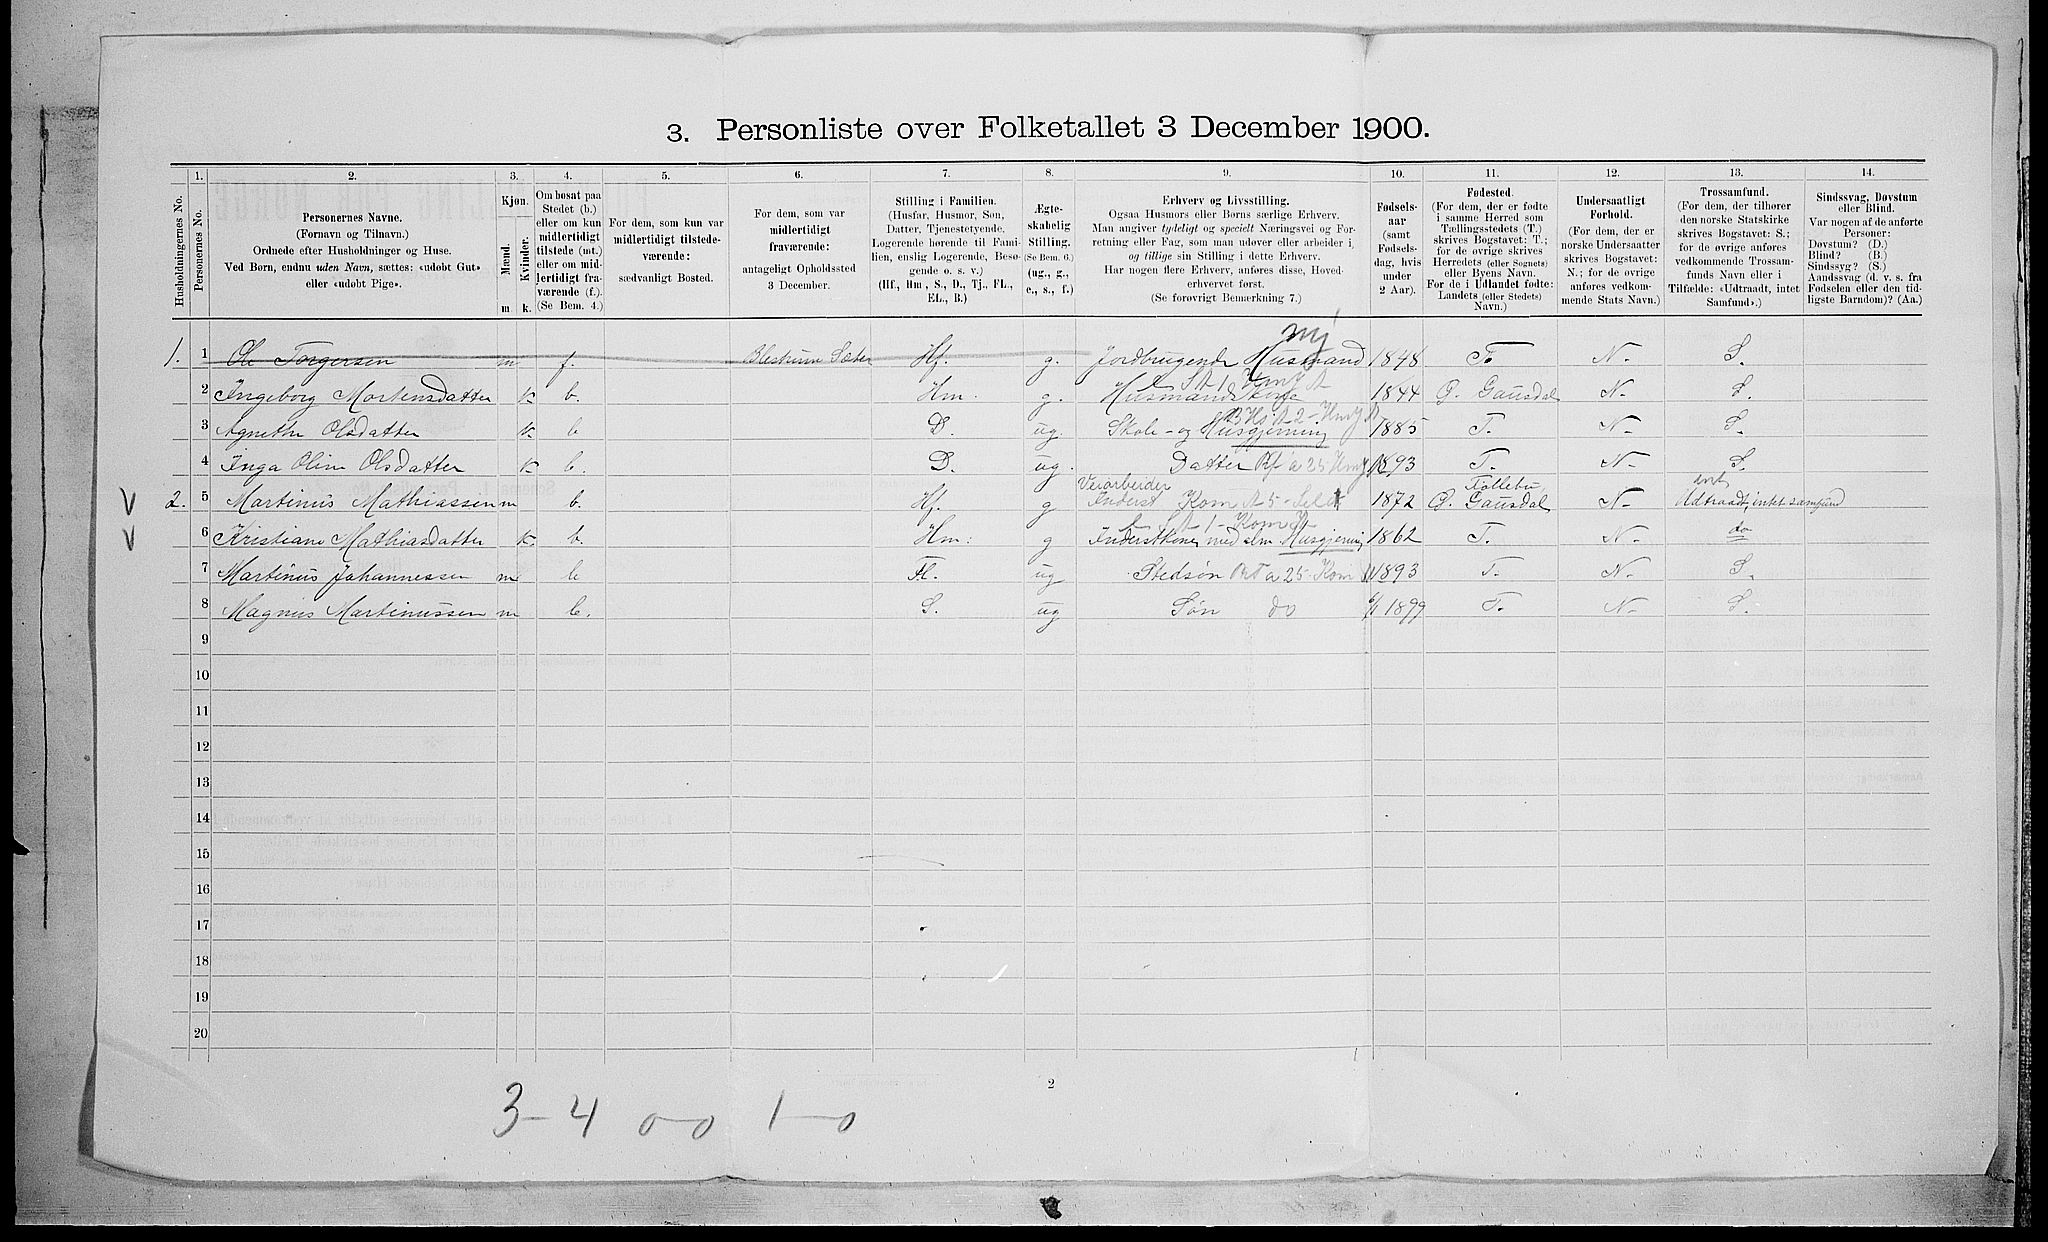 3. Personliste over Folketallet 3 December 1900.
1. 2. 3. 4. 5. 6. 7. 8. 9. 10. 11. 12. 13. 14.
Husholdningernes No.
Personernes No.
Personernes Navne.
(Fornavn og Tilnavn.)
Ordnede efter Husholdninger og Huse.
Ved Børn, endnu uden Navn, sættes: «udøbt Gut»
eller «udøbt Pige».
Kjøn.
Mænd.
Kvinder.
m. k.
Om bosat paa
Stedet (b.)
eller om kun
midlertidigt
tilstede (mt.)
eller om mid-
lertidigt fra-
værende (f.).
(Se Bem. 4.)
For dem, som kun var
midlertidigt tilstede-
værende:
sædvanligt Bosted.
For dem, som var
midlertidigt
fraværende:
antageligt Opholdssted
3 December.
Stilling i Familien.
(Husfar, Husmor, Søn,
Datter, Tjenestetyende,
Logerende hørende til Fami-
lien, enslig Logerende, Besø-
gende o. s. v.)
(Hf., Hm., S., D., Tj., FL.,
EL., B.)
Ægte-
skabelig
Stilling.
(Se Bem. 6.)
(ug., g.,
e., s., f.)
Erhverv og Livsstilling.
Ogsaa Husmors eller Børns særlige Erhverv.
Man angiver tydeligt og specielt Næringsvei og For-
retning eller Fag, som man udøver eller arbeider i,
og tillige sin Stilling i dette Erhverv.
Har nogen flere Erhverv, anføres disse, Hoved-
erhvervet først.
(Se forøvrigt Bemærkning 7.)
Fødsels-
aar
(samt
Fødsels-
dag, hvis
under
2 Aar).
Fødested.
(For dem, der er fødte
i samme Herred som
Tællingsstedets (T.)
skrives Bogstavet: T.;
for de øvrige skrives
Herredets (eller Sognets)
eller Byens Navn.
For de i Udlandet fødte:
Landets (eller Stedets)
Navn.)
Undersaatligt
Forhold.
(For dem, der er
norske Undersaatter
skrives Bogstavet:
N.; for de øvrige
anføres vedkom-
mende Stats Navn.)
Trossamfund.
(For dem, der tilhører
den norske Statskirke
skrives Bogstavet: S.;
for de øvrige anføres
vedkommende Trossam-
funds Navn eller i
Tilfælde: «Udtraadt, intet
Samfund».)
Sindssvag, Døvstum
eller Blind.
Var nogen af de anførte
Personer:
Døvstum? (D.)
Blind? (B.)
Sindssyg? (S.)
Aandssvag (d. v. s. fra
Fødselen eller den tid-
ligste Barndom)? (Aa.)
1. 1 Ole Torgersen m f. Sæter Hf. g. Jordbrugende Husmand 1848 T. N. S.
2 Ingeborg Mortensdatter k b. Hm. g. Husmandskone 1844 Ø. Gausdal N. S.
3 Agnethe Olsdatter k. b D. ug. Skole- og Husgjerning 1885 T. N. S.
4 Inga Oline Olsdatter k b. D. ug. Datter 1893 T. N. S.
Veiarbeider Follebu,
2. 5 Martinus Mathiassen m b. Hf. g Inderst 1872 Ø. Gausdal N. Udtraadt, intet samfund
6 Kristiane Mathiasdatter k. b. Hm. g Inderstkone med alm. Husgjerning 1862 T. N. do
7 Martinus Johannessen m b Fl. ug Stedsøn 1893 T. N. S.
8 Magnus Martinussen m b. S. ug Søn do 6/1 1899 T. N. S.
9
10
11
12
13
14
15
16
17
18
19
20
2
3-4 0-0 1-0